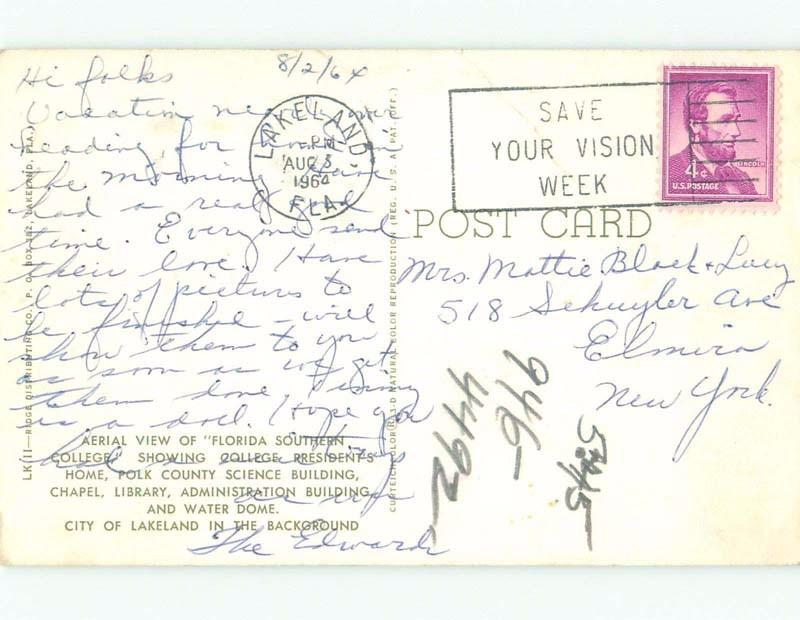 8/2/64
Hi folks
Vacation
heading for in
the morning. Have
had a real good
time. Everyone send
their love. Have
lots of pictures to
be finished - will
show them to you
as soon as we get
them done.
is a doll. Hope you
had
as
The Edwards
LAKELAND
PM
AUG 3
1964
FLA.
SAVE
YOUR VISION
WEEK
LINCOLN
4¢
U.S. POSTAGE
POST CARD
Mrs. Mattie Black + Lucy
518 Schuyler Ave
Elmira
New York.
946-
4492
AERIAL VIEW OF "FLORIDA SOUTHERN
COLLEGE" SHOWING COLLEGE PRESIDENT'S
HOME, POLK COUNTY SCIENCE BUILDING,
CHAPEL, LIBRARY, ADMINISTRATION BUILDING
AND WATER DOME.
CITY OF LAKELAND IN THE BACKGROUND
LK 11—RIDGE DISTRIBUTING CO., P. O. BOX 282, LAKELAND, FLA.
CURTEICHCOLOR® 3-D NATURAL COLOR REPRODUCTION (REG. U. S. A. PAT. OFF.)